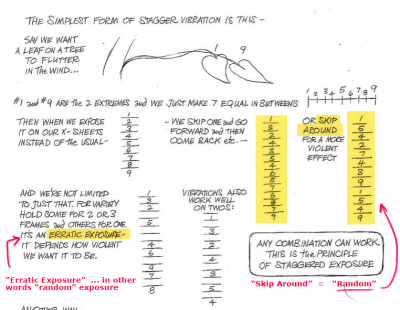 THE SIMPLEST FORM OF STAGGER VIBRATION IS THIS –
SAY WE WANT
A LEAF ON A TREE
TO FLUTTER
IN THE WIND...
1 9
#1 and #9 ARE THE 2 EXTREMES and WE JUST MAKE 7 EQUAL IN BETWEENS
1 2 3 4 5 6 7 8 9
THEN WHEN WE EXPOSE
IT ON OUR X-SHEETS
INSTEAD OF THE USUAL–
1
2
3
4
5
6
7
8
9
– WE SKIP ONE and GO
FORWARD and THEN
COME BACK etc. –
1
3
2
4
3
5
4
6
5
7
6
8
7
9
OR SKIP
AROUND
FOR A MORE
VIOLENT
EFFECT
1
5
4
2
AND WE'RE NOT LIMITED
TO JUST THAT. FOR VARIETY
HOLD SOME FOR 2 OR 3
FRAMES and OTHERS FOR ONE.
IT'S AN ERRATIC EXPOSURE–
IT DEPENDS HOW VIOLENT
WE WANT IT TO BE.
1
3
2
5
4
6
9
7
8
VIBRATIONS ALSO
WORK WELL
ON TWOS:
1
3
2
4
3
5
ANY COMBINATION CAN WORK.
THIS IS the PRINCIPLE
OF STAGGERED EXPOSURE
"Erratic Exposure" ... in other
words "random" exposure
"Skip Around" = "Random"